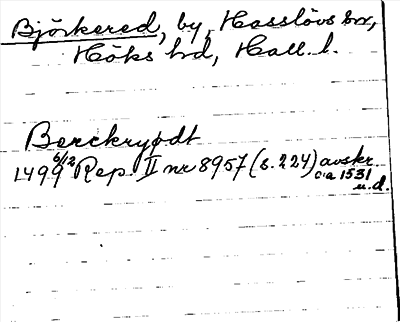 Björkered, by, Hasslövs sn,
Höks hd, Hall. l.
Berckryødt
1499 6/12 Rep. II nr 8957 (s. 224) avskr.
ca 1531
u.d.